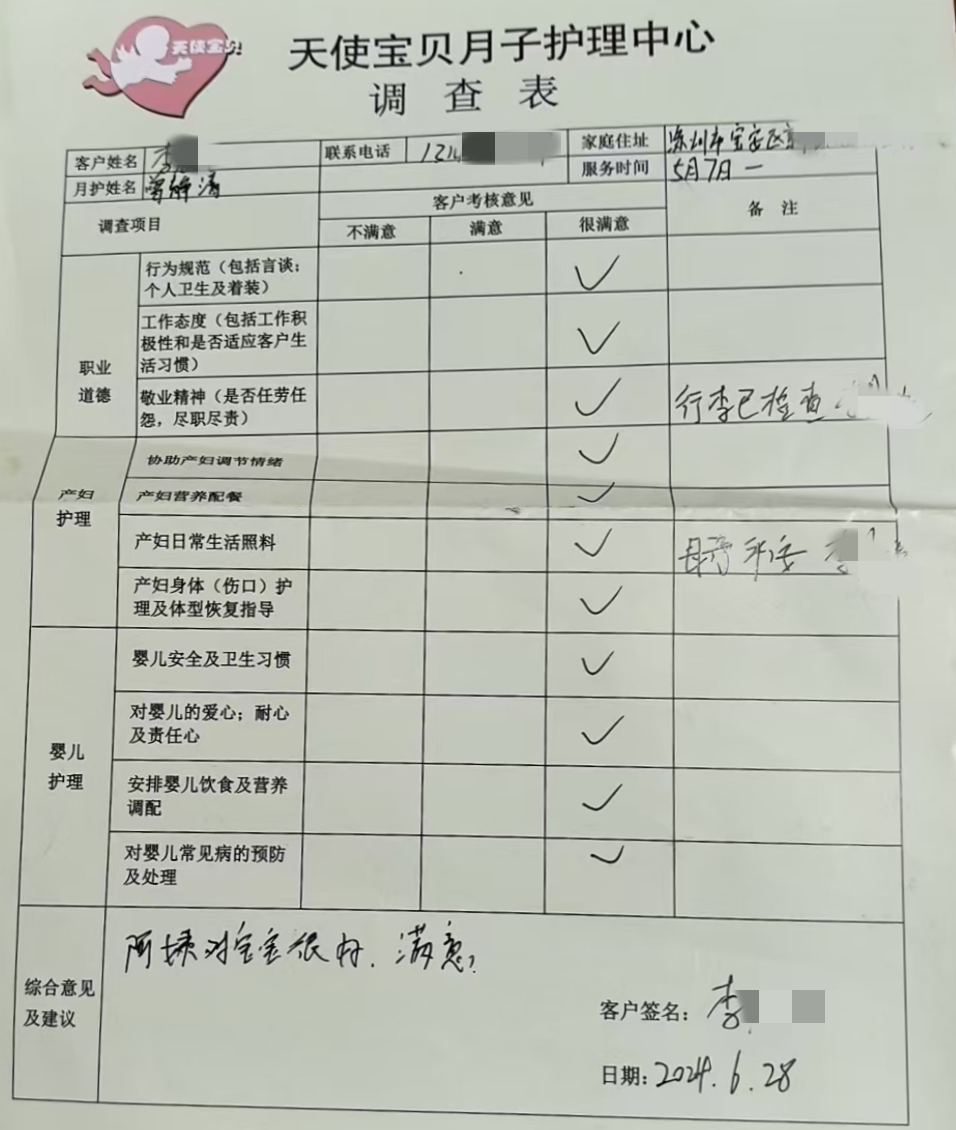 天使宝贝
天使宝贝月子护理中心
调 查 表
客户姓名 李 联系电话 家庭住址 深圳市宝安区
月护姓名 服务时间 5月7日一
调查项目 客户考核意见 备 注
不满意 满意 很满意
职业
道德
行为规范（包括言谈；
个人卫生及着装） ✓
工作态度（包括工作积
极性和是否适应客户生
活习惯） ✓
敬业精神（是否任劳任
怨，尽职尽责） ✓ 行李已检查
产妇
护理
协助产妇调节情绪 ✓
产妇营养配餐 ✓
产妇日常生活照料 ✓ 李
产妇身体（伤口）护
理及体型恢复指导 ✓
婴儿
护理
婴儿安全及卫生习惯 ✓
对婴儿的爱心；耐心
及责任心 ✓
安排婴儿饮食及营养
调配 ✓
对婴儿常见病的预防
及处理 ✓
综合意见
及建议
阿姨对宝宝很好.满意！
客户签名：李
日期：2024.6.28